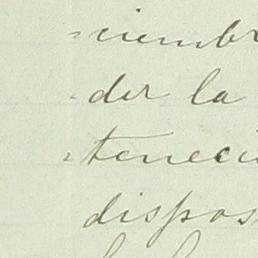 =ciembr
der la
=teneci
dispos